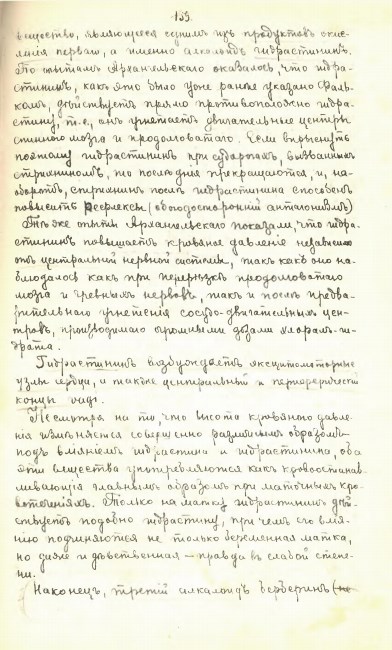 155.
вещество, являющееся однимъ изъ продуктовъ окис-
ленія перваго, а именно алкалоидъ гидрастининъ.
По опытамъ Архангельскаго оказалось, что гидра-
стининъ, какъ это было уже ранѣе указано Фаль-
комъ, дѣйствуетъ прямо противоположно гидра-
стину, т.е., онъ угнетаетъ двигательные центры
спинного мозга и продолговатаго. Если впрыснуть
поэтому гидрастининъ при судорогахъ, вызванныхъ
стрихниномъ, то послѣднія прекращаются, и, на-
оборотъ, стрихнинъ послѣ гидрастинина способенъ
повысить рефлексы (обоюдосторонній антагонизмъ)
Тѣ же опыты Архангельскаго показали, что гидра-
стининъ повышаетъ кровяное давленіе независимо
отъ центральной нервной системы, такъ какъ оно на-
блюдалось какъ при перерѣзкѣ продолговатаго
мозга и чревныхъ нервовъ, такъ и послѣ предва-
рительнаго угнетенія сосудо-двигательныхъ цен-
тровъ, производимаго огромными дозами хлоралъ-ги-
драта.
Гидрастининъ возбуждаетъ эксцитомоторные
узлы сердца, а также центральный и периферическій
концы vagi.
Несмотря на то, что высота кровяного давле-
нія измѣняется совершенно различнымъ образомъ
подъ вліяніемъ гидрастина и гидрастинина, оба
эти вещества употребляются какъ кровоостанав-
ливающія главнымъ образомъ при маточныхъ кро-
вотеченіяхъ. Только на матку гидрастининъ дѣй-
ствуетъ подобно гидрастину, при чемъ его влія-
нію подчиняются не только беременная матка,
но даже и дѣвственная – правда въ слабой степе-
ни.
Наконецъ, третій алкалоидъ берберинъ